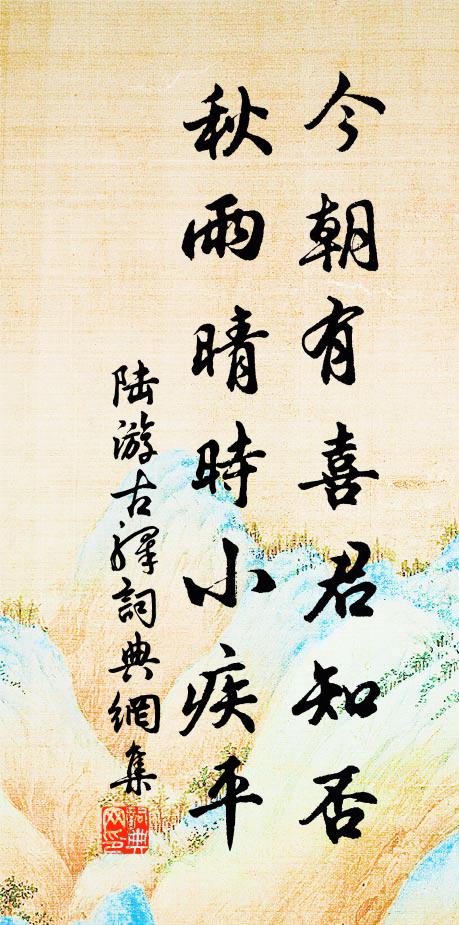 今朝有喜君知否
秋雨晴時小疾平
陆游古驛詞典網集
詞典
网印